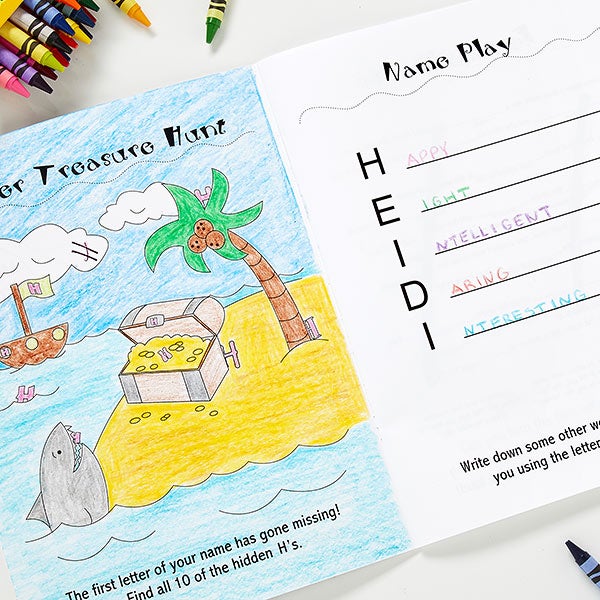 er Treasure Hunt
The first letter of your name has gone missing!
Find all 10 of the hidden H's.
Name Play
H APPY
E IGHT
I NTELLIGENT
D ARING
I NTERESTING
Write down some other
you using the letter